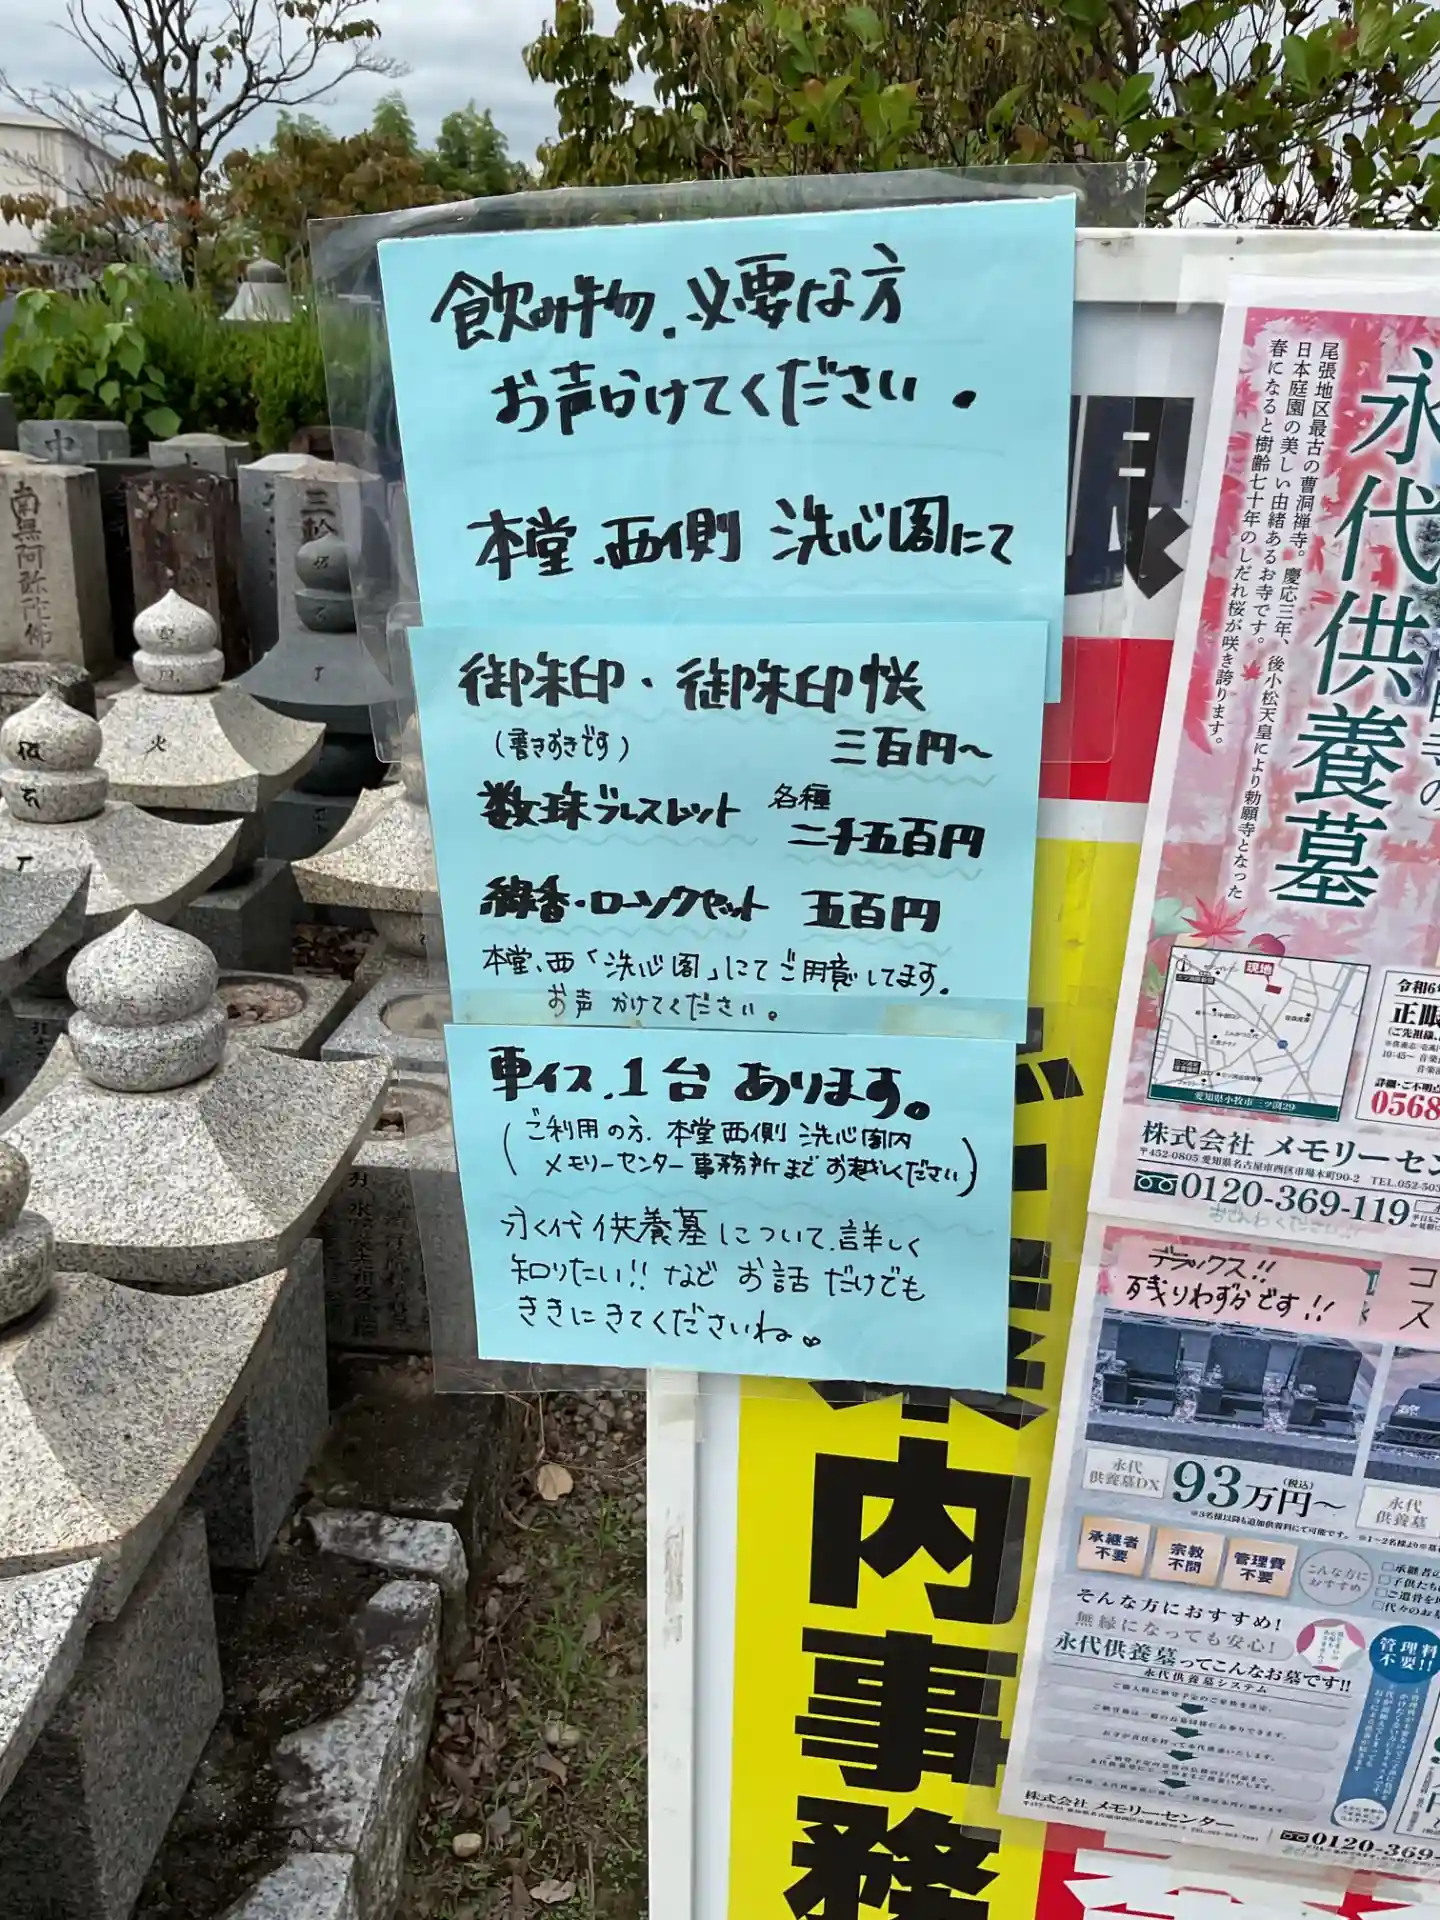 飲み物、必要な方
お声かけてください。
本堂、西側 洗心閣にて
御朱印・御朱印帳
(書きおきです)
三百円〜
数珠ブレスレット 各種
二千五百円
線香・ローソクセット 五百円
本堂、西「洗心閣」にてご用意してます。
お声かけてください。
車イス、1台 あります。
(ご利用の方、本堂西側 洗心閣内
メモリーセンター事務所までお越しください)
永く代供養墓について、詳しく
知りたい!! など お話だけでも
ききにきてくださいね。
案内事務
永代供養墓
尾張地区最古の曹洞禅寺。慶応三年、後小松天皇により勅願寺となった
日本庭園の美しい由緒あるお寺です。
春になると樹齢七十年のしだれ桜が咲き誇ります。
現地
愛知県小牧市三ツ渕29
令和6
正眼
10:45〜
0568
株式会社 メモリーセン
〒452-0805 愛知県名古屋市西区市場木町90-2 TEL.052-503
0120-369-119
デラックス!!
残りわずかです!!
コ
ス
永代
供養墓DX
93万円〜
(税込)
永代
供養墓
承継者
不要
宗教
不問
管理費
不要
こんな方に
おすすめ
そんな方におすすめ!
無縁になっても安心!
永代供養墓ってこんなお墓です!!
永代供養墓システム
管理料
不要!!
株式会社 メモリーセンター
0120-369-
南無阿弥陀佛